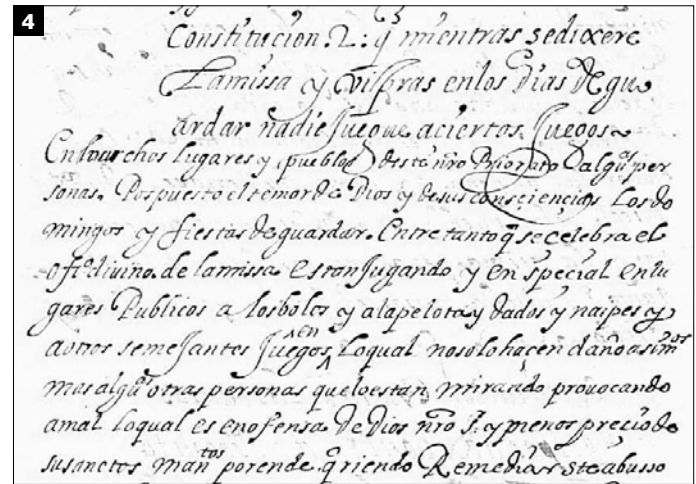 4
Constitucion. 2: q̃ mientras se dixere
La missa y vispras en los dias de gu
ardar nadie juegue a ciertos Juegos
En muchos lugares y pueblos deste nr̃o Priorato algũs per
sonas. Pospuesto el temor de Dios y de sus consciencias Los do
mingos y fiestas de guardar. Entre tanto q̃ se celebra el
ofiº divino. de la missa. estan Jugando y en special en lu
gares Publicos a los bolos y a la pelota y dados y naipes y
a otros semejantes Juegos, en Lo qual no solo hacen daño a si mᵒˢ
mas algũs otras personas que lo estan mirando provocando
a mal lo qual es en ofensa de Dios nr̃o s. y menos precio de
su sanctos mantos porende q̃riendo Remediar ste abusso